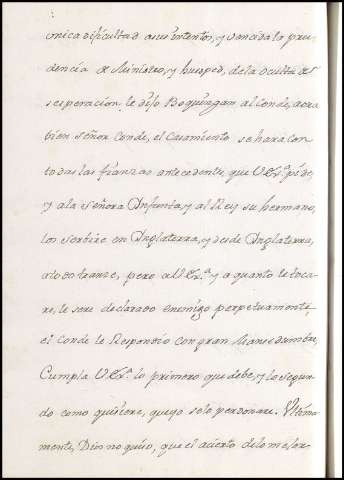 unica dificultad a sus intentos, y vencida la pru-
dencia de Ministro, y huesped, de la oculta de-
sesperacion le dijo Boquingan al Conde, aora
bien señor Conde, el Casamiento se hara con
todas las fianzas antecedente, que V Exª. pide,
y a la Señora Infanta, y al Rey su hermano,
los servire en Inglaterra, y desde Inglaterra,
a todo tranze, pero a V. Exª. y a quanto le toca-
re, le sere declarado enemigo perpetuamente
el Conde le Respondio con gran Mansedumbre,
Cumpla V Exª. lo primero que debe, y lo segun-
do como quisiere, que yo selo perdonare. Ultima-
mente, Dios no quiso, que el acierto de lo mejor